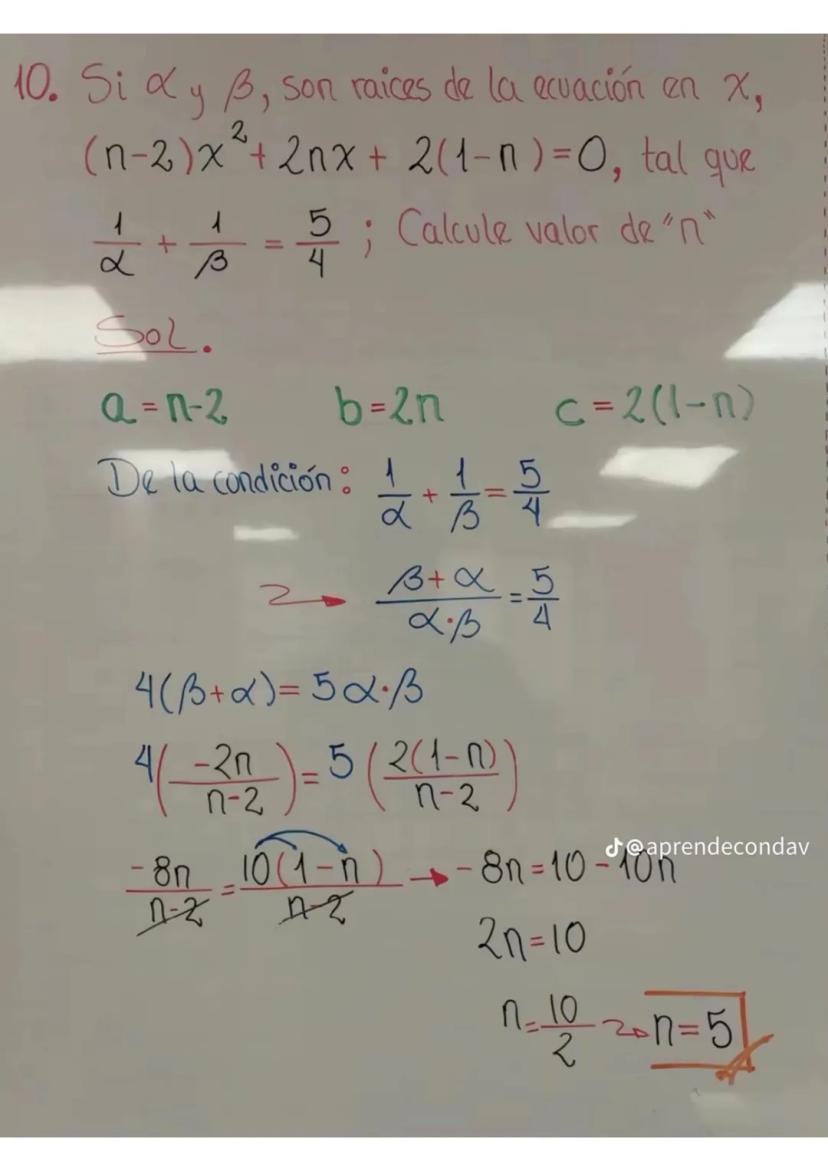 10. Si α y β, son raices de la ecuación en x,
(n-2)x² + 2nx + 2(1-n) = 0, tal que
1/α + 1/β = 5/4 ; Calcule valor de "n"
Sol.
a = n-2 b = 2n c = 2(1-n)
De la condición: 1/α + 1/β = 5/4
→ (β+α)/(α·β) = 5/4
4(β+α) = 5α·β
4(-2n/(n-2)) = 5(2(1-n)/(n-2))
@aprendecondav
-8n/(n-2) = 10(1-n)/(n-2) → -8n = 10 - 10n
2n = 10
n = 10/2 → n = 5